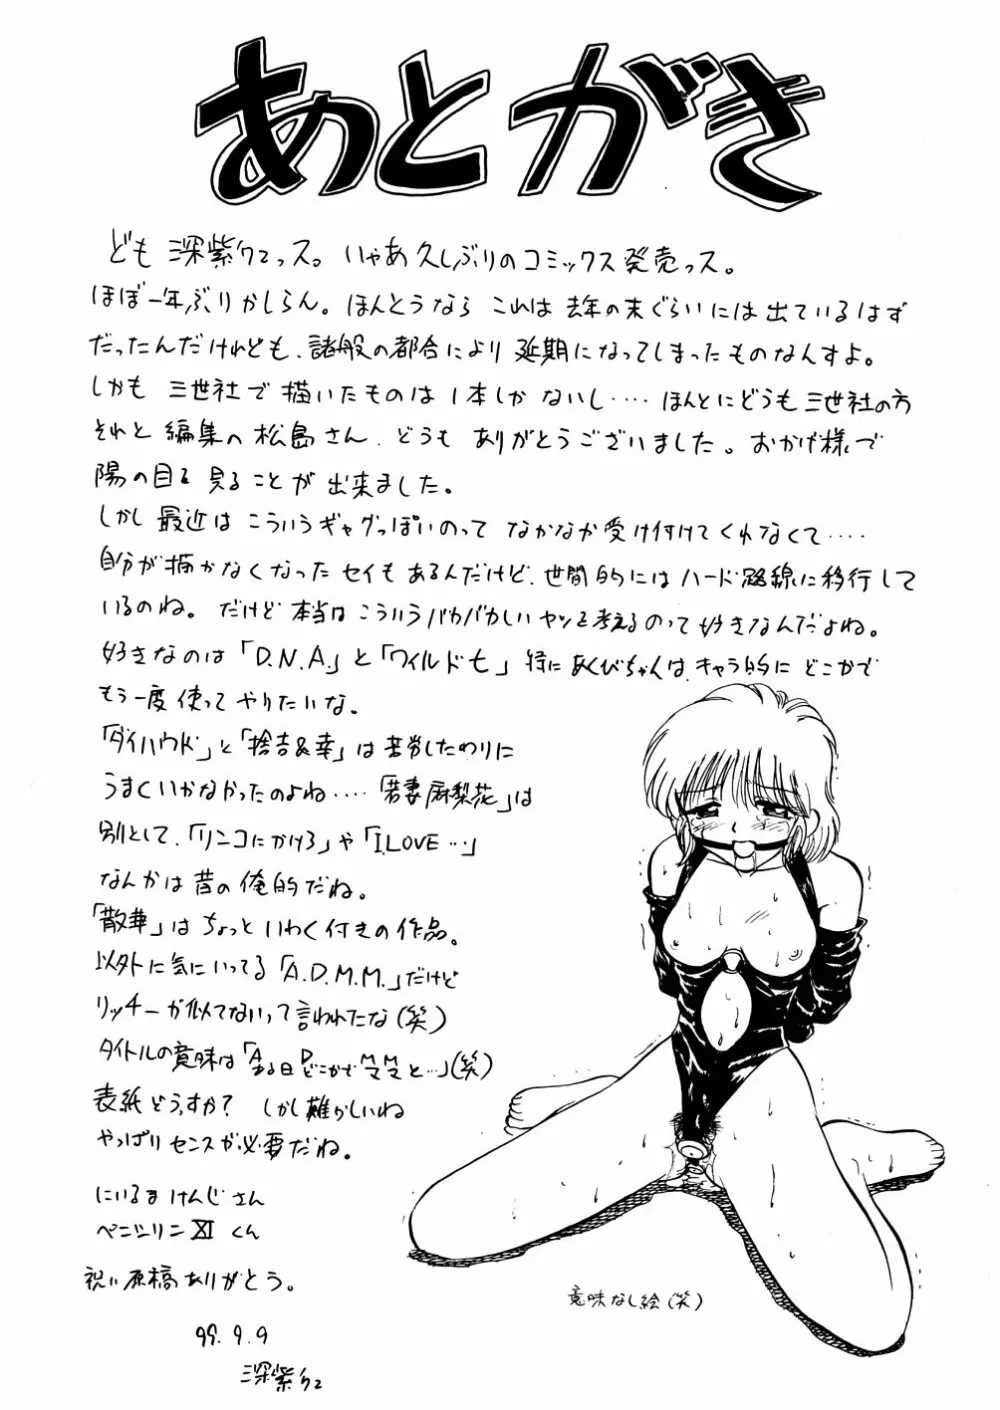 あとがき
ども 深紫クbっス。いやあ久しぶりのコミックス発売っス。
ほぼ一年ぶりかしらん。ほんとうなら これは 去年の末ぐらいには出ているはず
だったんだけれども、諸般の都合により 延期になってしまったものなんすよ。
しかも 三世社で 描いたものは 1本しか ないし‥‥ ほんとにどうも三世社の方
それと 編集の 松島さん、どうも ありがとうございました。おかげ様で
陽の目を 見ることが 出来ました。
しかし 最近は こういうギャグっぽいのって なかなか受け付けてくれなくて‥‥
自分が描かなくなったセイもあるんだけど、世間的にはハード路線に移行して
いるのね。だけど 本当は こういうバカバカしいヤツを考えるのって好きなんだよね。
好きなのは「D.N.A.」と「ワイルドセ」特に あくびちゃんは、キャラ的に どこかで
もう一度 使って やりたいな。
「ダイハウド」と「捨吉&幸」は 苦労したわりに
うまくいかなかったのよね‥‥「若妻麻梨花」は
別として、「リンコにかけろ」や「I.LOVE…」
なんかは 昔の俺的だね。
「散華」は ちょっと いわく付きの作品。
以外に気にいってる「A.D.M.M.」だけど
リッチーが似てないって言われたな(笑)
タイトルの意味は「ある日 どこかで ママと…」(笑)
A D M M
表紙どうっすか? しかし難かしいね
やっぱり センスが必要だね。
にいるまけんじさん
ペニシリンXI くん
祝い原稿ありがとう。
意味なし絵(笑)
99.9.9
深紫